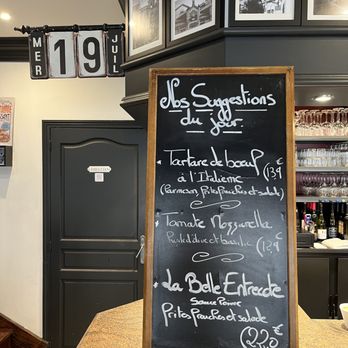 MER 19 JUIL
Nos Suggestions
du jour.
Tartare de boeuf
à l'Italienne
(Parmesan, frites fraîches et salade)
Tomate Mozzarella
La Belle Entrecôte
Sauce Poivre
Frites fraîches et salade